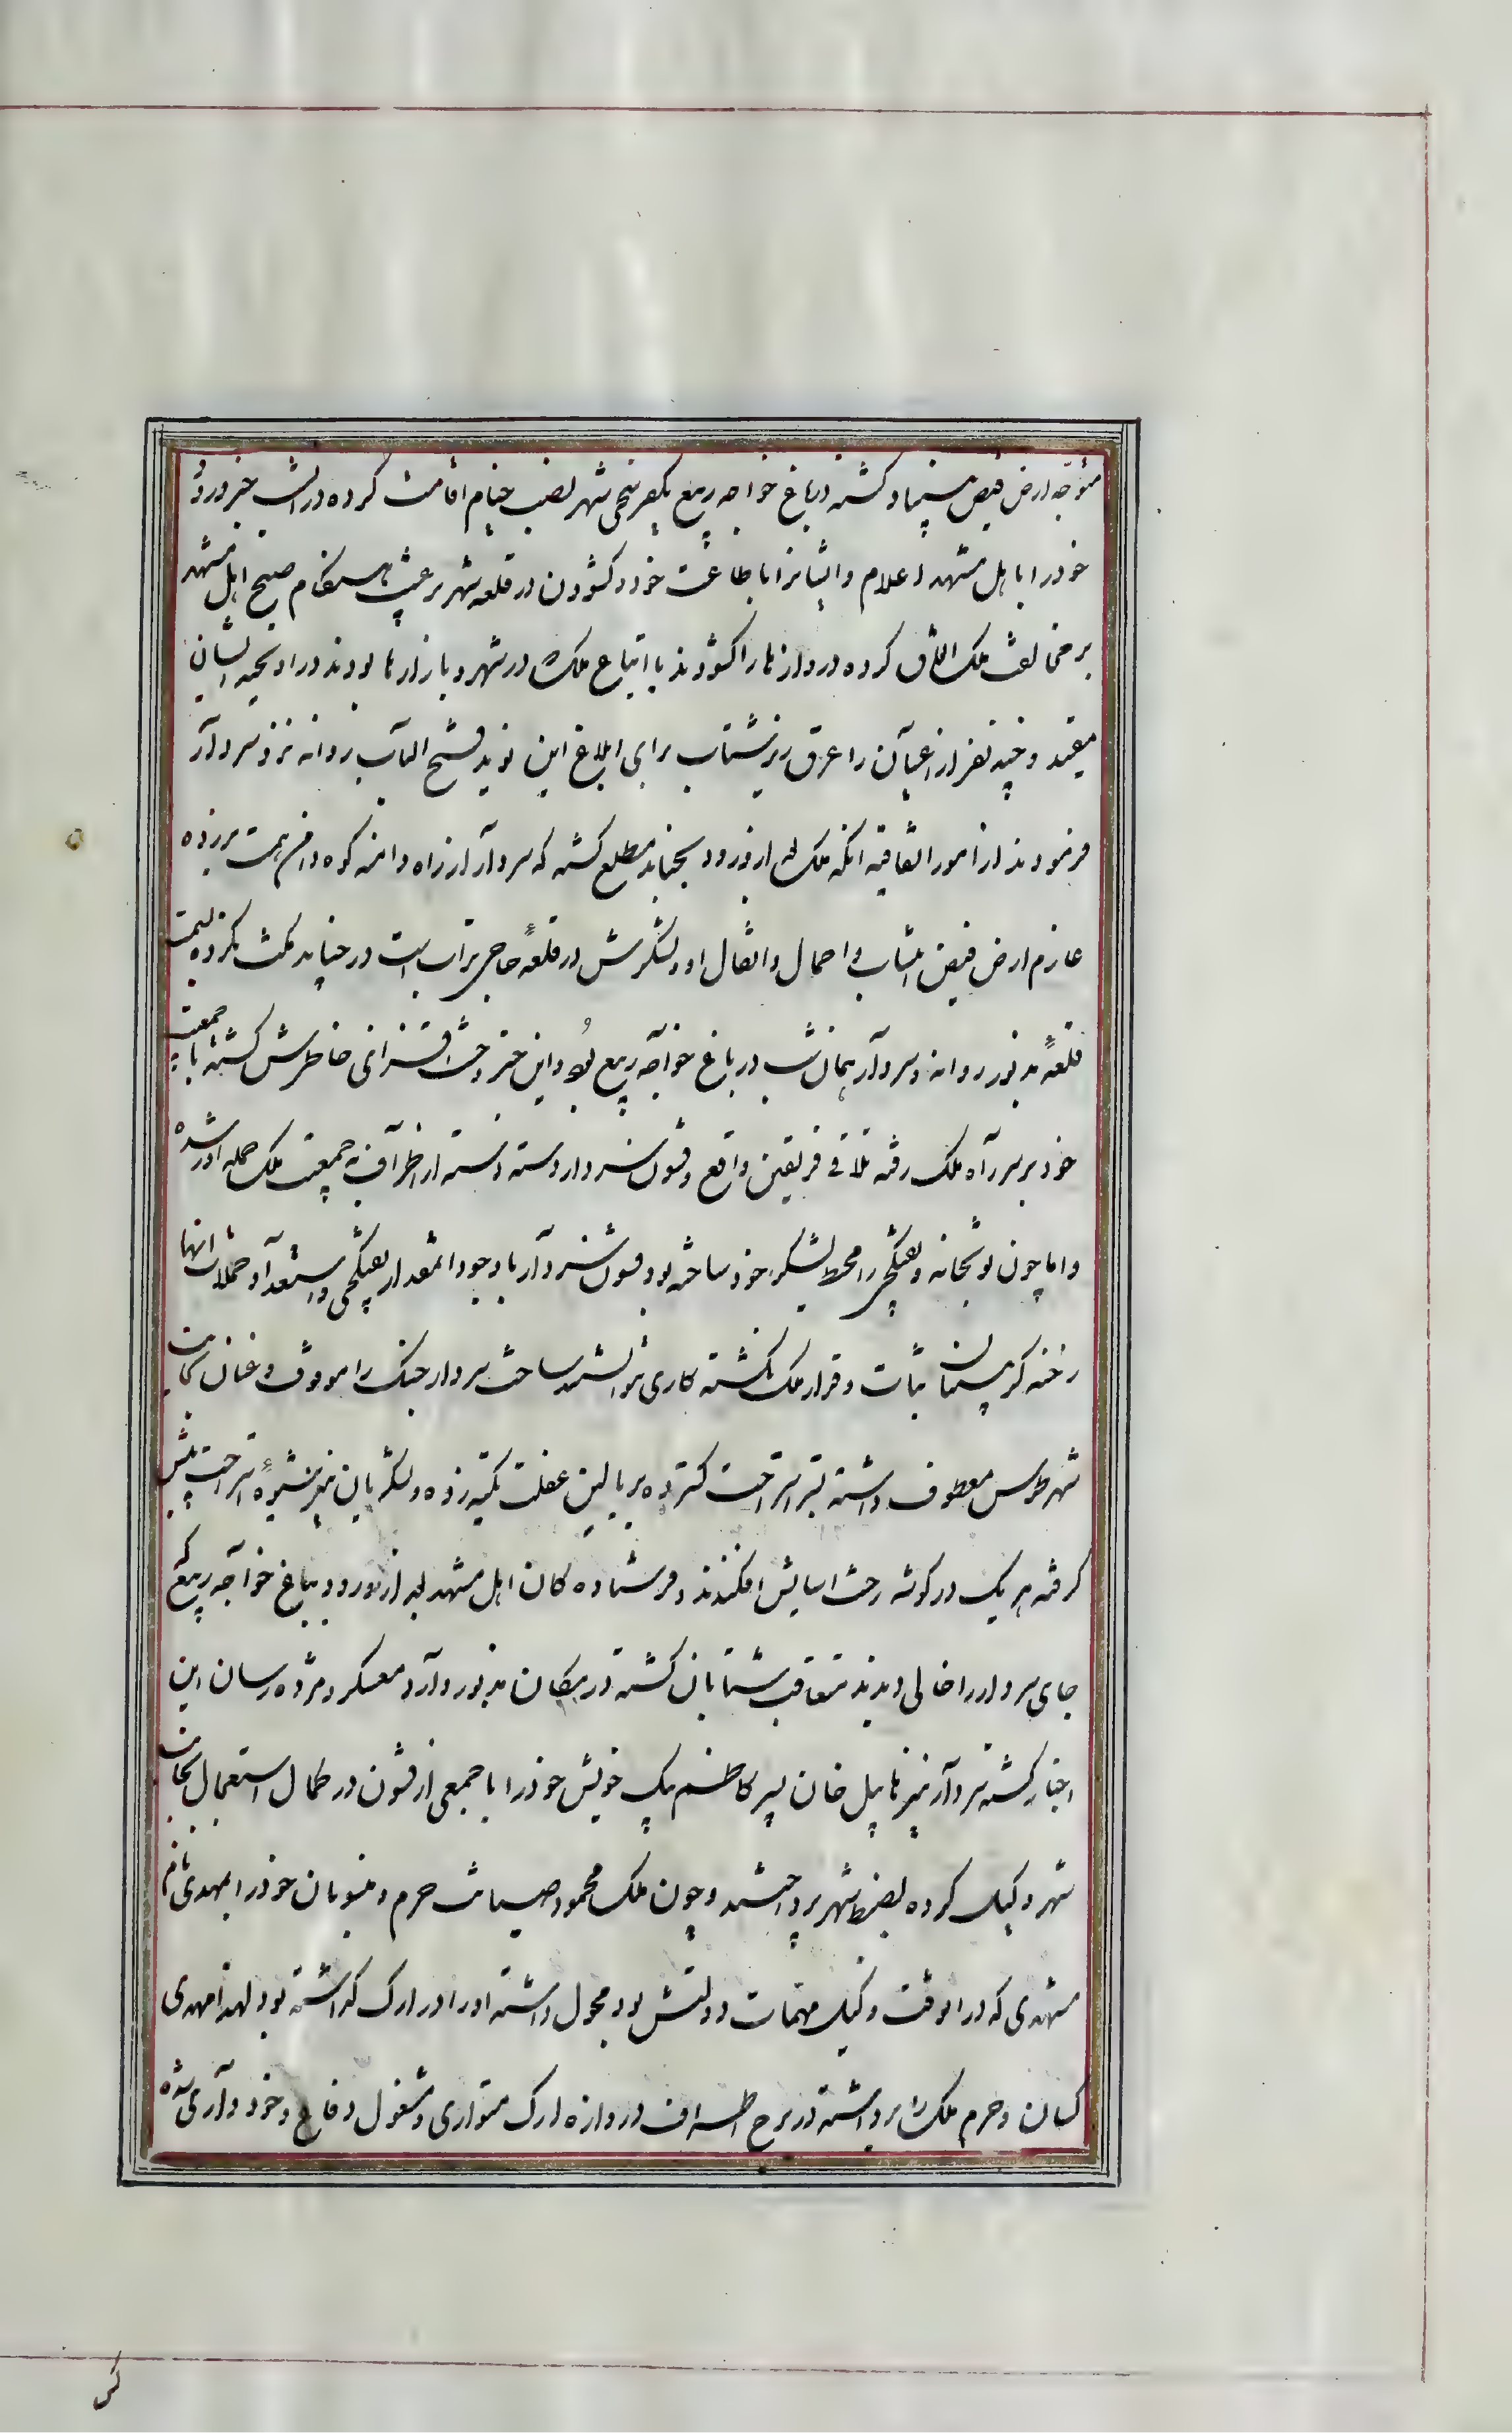 متوجه ارض فیض بنیاد کشته در باغ خواجه ربیع یکفرسخی شهر نصب خیام اقامت کرده در انشب خبر ورود
خود را باهل مشهد اعلام و ایشانرا باطاعت خود و کشودن در قلعه شهر ترغیب هنکام صبح اهل مشهد
بر مخالفت ملک اتفاق کرده دروازها را کشودند با اتباع ملک در شهر و بازارها بودند در اوپخته ایشان
مقید و چند نفر از اعیان را عرق ریز شتاب برای ابلاغ این نوید فتح الباب روانه نزد سردار
فرمودند از امور اتفاقیه انکه ملک بعد از ورود بجناید مطلع کشته که سردار از راه دامنه کوه دامن همت برزده
عازم ارض فیض انتساب و احمال و اثقال او و لشکرش در قلعهٔ حاجی تراب است در جناید مکث نکرده بسمت
قلعهٔ مذبور روانه و سردار همان شب در باغ خواجه ربیع بود و این خبر وحشت افزای خاطرش کشته با جمعیت
خود بر سر راه ملک رفته تلاقی فریقین واقع و قشون سردار دسته دسته از اطراف به جمعیت ملک حمله اور شده
و اما چون توپخانه و تفنکچی را محیط لشکر خود ساخته بود قشون سردار با وجود انمقدار تفنکچی و استعداد و حملات انها
رخنه کر بنیان ثبات و قرار ملک نکشته کاری نتوانستند ساخت سردار جنک را موقوف و عنان بجانب
شهر طوس معطوف داشته بستر استراحت کسترده بر بالین غفلت تکیه زده و لشکریان نیز شیوهٔ استراحت پیش
کرفته هر یک در کوشه رحت اسایش افکندند و فرستاده کان اهل مشهد بعد از ورود بباغ خواجه ربیع که
جای سردار را خالی دیدند متعاقب شتابان کشته در مکان مذبور وارد معسکر و مژده رسان این
اخبار کشته سردار نیز نابیل خان پسر کاظم بیک خویش خود را با جمعی از قشون در کمال استعجال بجانب
شهر و کیل کرده بضبط شهر پرداختند و چون ملک محمود صیانت حرم و منسوبان خود را بمهدی نام
مشهدی که در انوقت وکیل مهمات دولتش بود محول داشته او را در ارک کذاشته بود لهذا مهدی
کسان و حرم ملک را برداشته در برج اطراف دروازه ارک متواری و مشغول دفاع و خود داری شده
کس